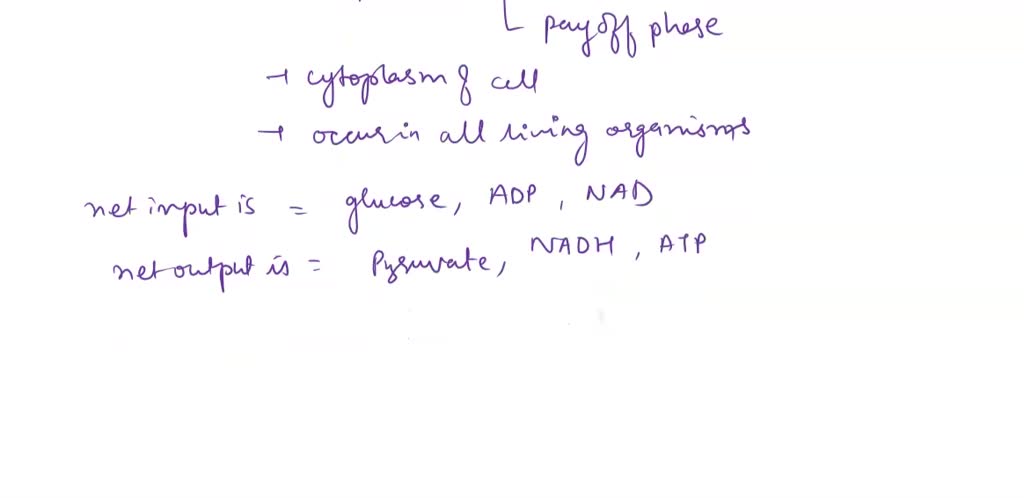 └ pay off phase
→ cytoplasm of cell
→ occurs in all living organisms
net input is = glucose, ADP, NAD
net output is = Pyruvate, NADH, ATP